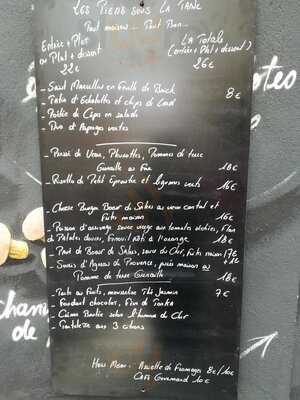 LES PIEDS SOUS LA TABLE
Tout maison... Tout Bon...
Entrée + Plat
ou Plat + dessert
22€
LA Totale
(entrée + Plat + dessert)
26€
- Saint Marcellin en feuille de Brick
- Pâtés et Echalottes et chips de Lard 8€
- Poêlée de Cèps en salade
- Duo d'Asperges vertes
- Pavé de Veau, Pleurottes, Pommes de terre
Grenaille au Four 18€
- Risotto de Petit Epeautre et légumes verts 16€
- Cheese Burger Boeuf de Salers au vieux cantal et
frites maison 16€
- Poisson d'arrivage sauce vierge aux tomates séchées, Flan
de Patates douces, Fenouil rôti à l'orange 18€
- Pavé de Boeuf de Salers, sauce du Chef, frites maison 17€
- Souris d'Agneau de Provence, purée maison ou
Pomme de terre Grenaille 18€
- Pasta au Fruits, mousseline Thé Jasmin 7€
- Fondant chocolat, Fève de Tonka
- Crème Brûlée selon l'humeur du Chef
- Tartelette aux 3 citrons
Hors Menu: Assiette de Fromages 8€/10€
Café Gourmand 10€
otes
chani
de